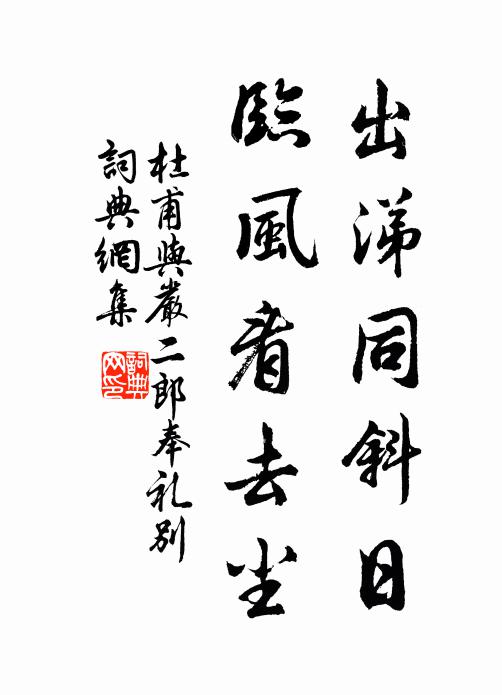 出涕同斜日
臨風看去尘
杜甫與嚴二郎奉礼別
詞典網集
詞典网印